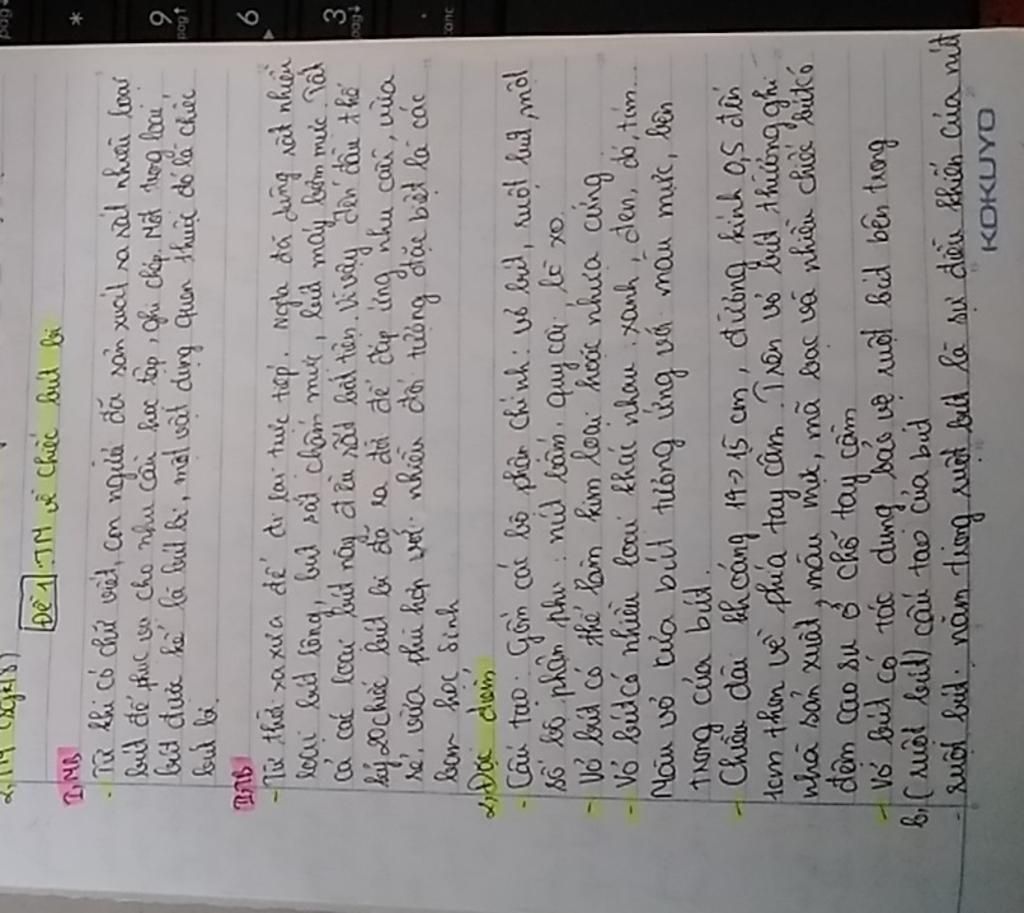 Đề 1 : TM về chiếc bút bi
I, MB
- Từ khi có chữ viết, con người đã sản xuất ra rất nhiều loại
bút để phục vụ cho nhu cầu học tập, ghi chép. Một trong loại
bút được kể là bút bi, một vật dụng quen thuộc đó là chiếc
bút bi
II, TB
- Từ thời xa xưa để
loại bút lông, bút sắt chấm mực, bút máy bơm mực. Tất
cả các loại bút này đều rất bất tiện. Vì vậy đến đầu thế
kỷ 20 chiếc bút bi đã ra đời để đáp ứng nhu cầu, vừa
rẻ, vừa phù hợp với nhiều đối tượng đặc biệt là các
bạn học sinh
2, Đặc điểm
- Cấu tạo: Gồm các bộ phận chính: vỏ bút, ruột bút, một
số bộ phận phụ: nút bấm, quy cài, lò xo.
- Vỏ bút có thể làm kim loại hoặc nhựa cứng
- Vỏ bút có nhiều loại khác nhau: xanh, đen, đỏ, tím...
Màu vỏ của bút tương ứng với màu mực, bên
trong của bút.
- Chiều dài khoảng 14->15 cm, đường kính 0,5 đến
1cm thon về phía tay cầm. Trên vỏ bút thường ghi
nhà sản xuất, màu mực, mã vạc và nhiều chiếc bút có
đệm cao su ở chỗ tay cầm
- Vỏ bút có tác dụng bảo vệ ruột bút bên trong
b, (ruột bút) cấu tạo của bút
- ruột bút: nằm trong ruột bút là sự điều khiển của nút
KOKUYO
*
9
pag↑
6
3
pag↓
.
canc